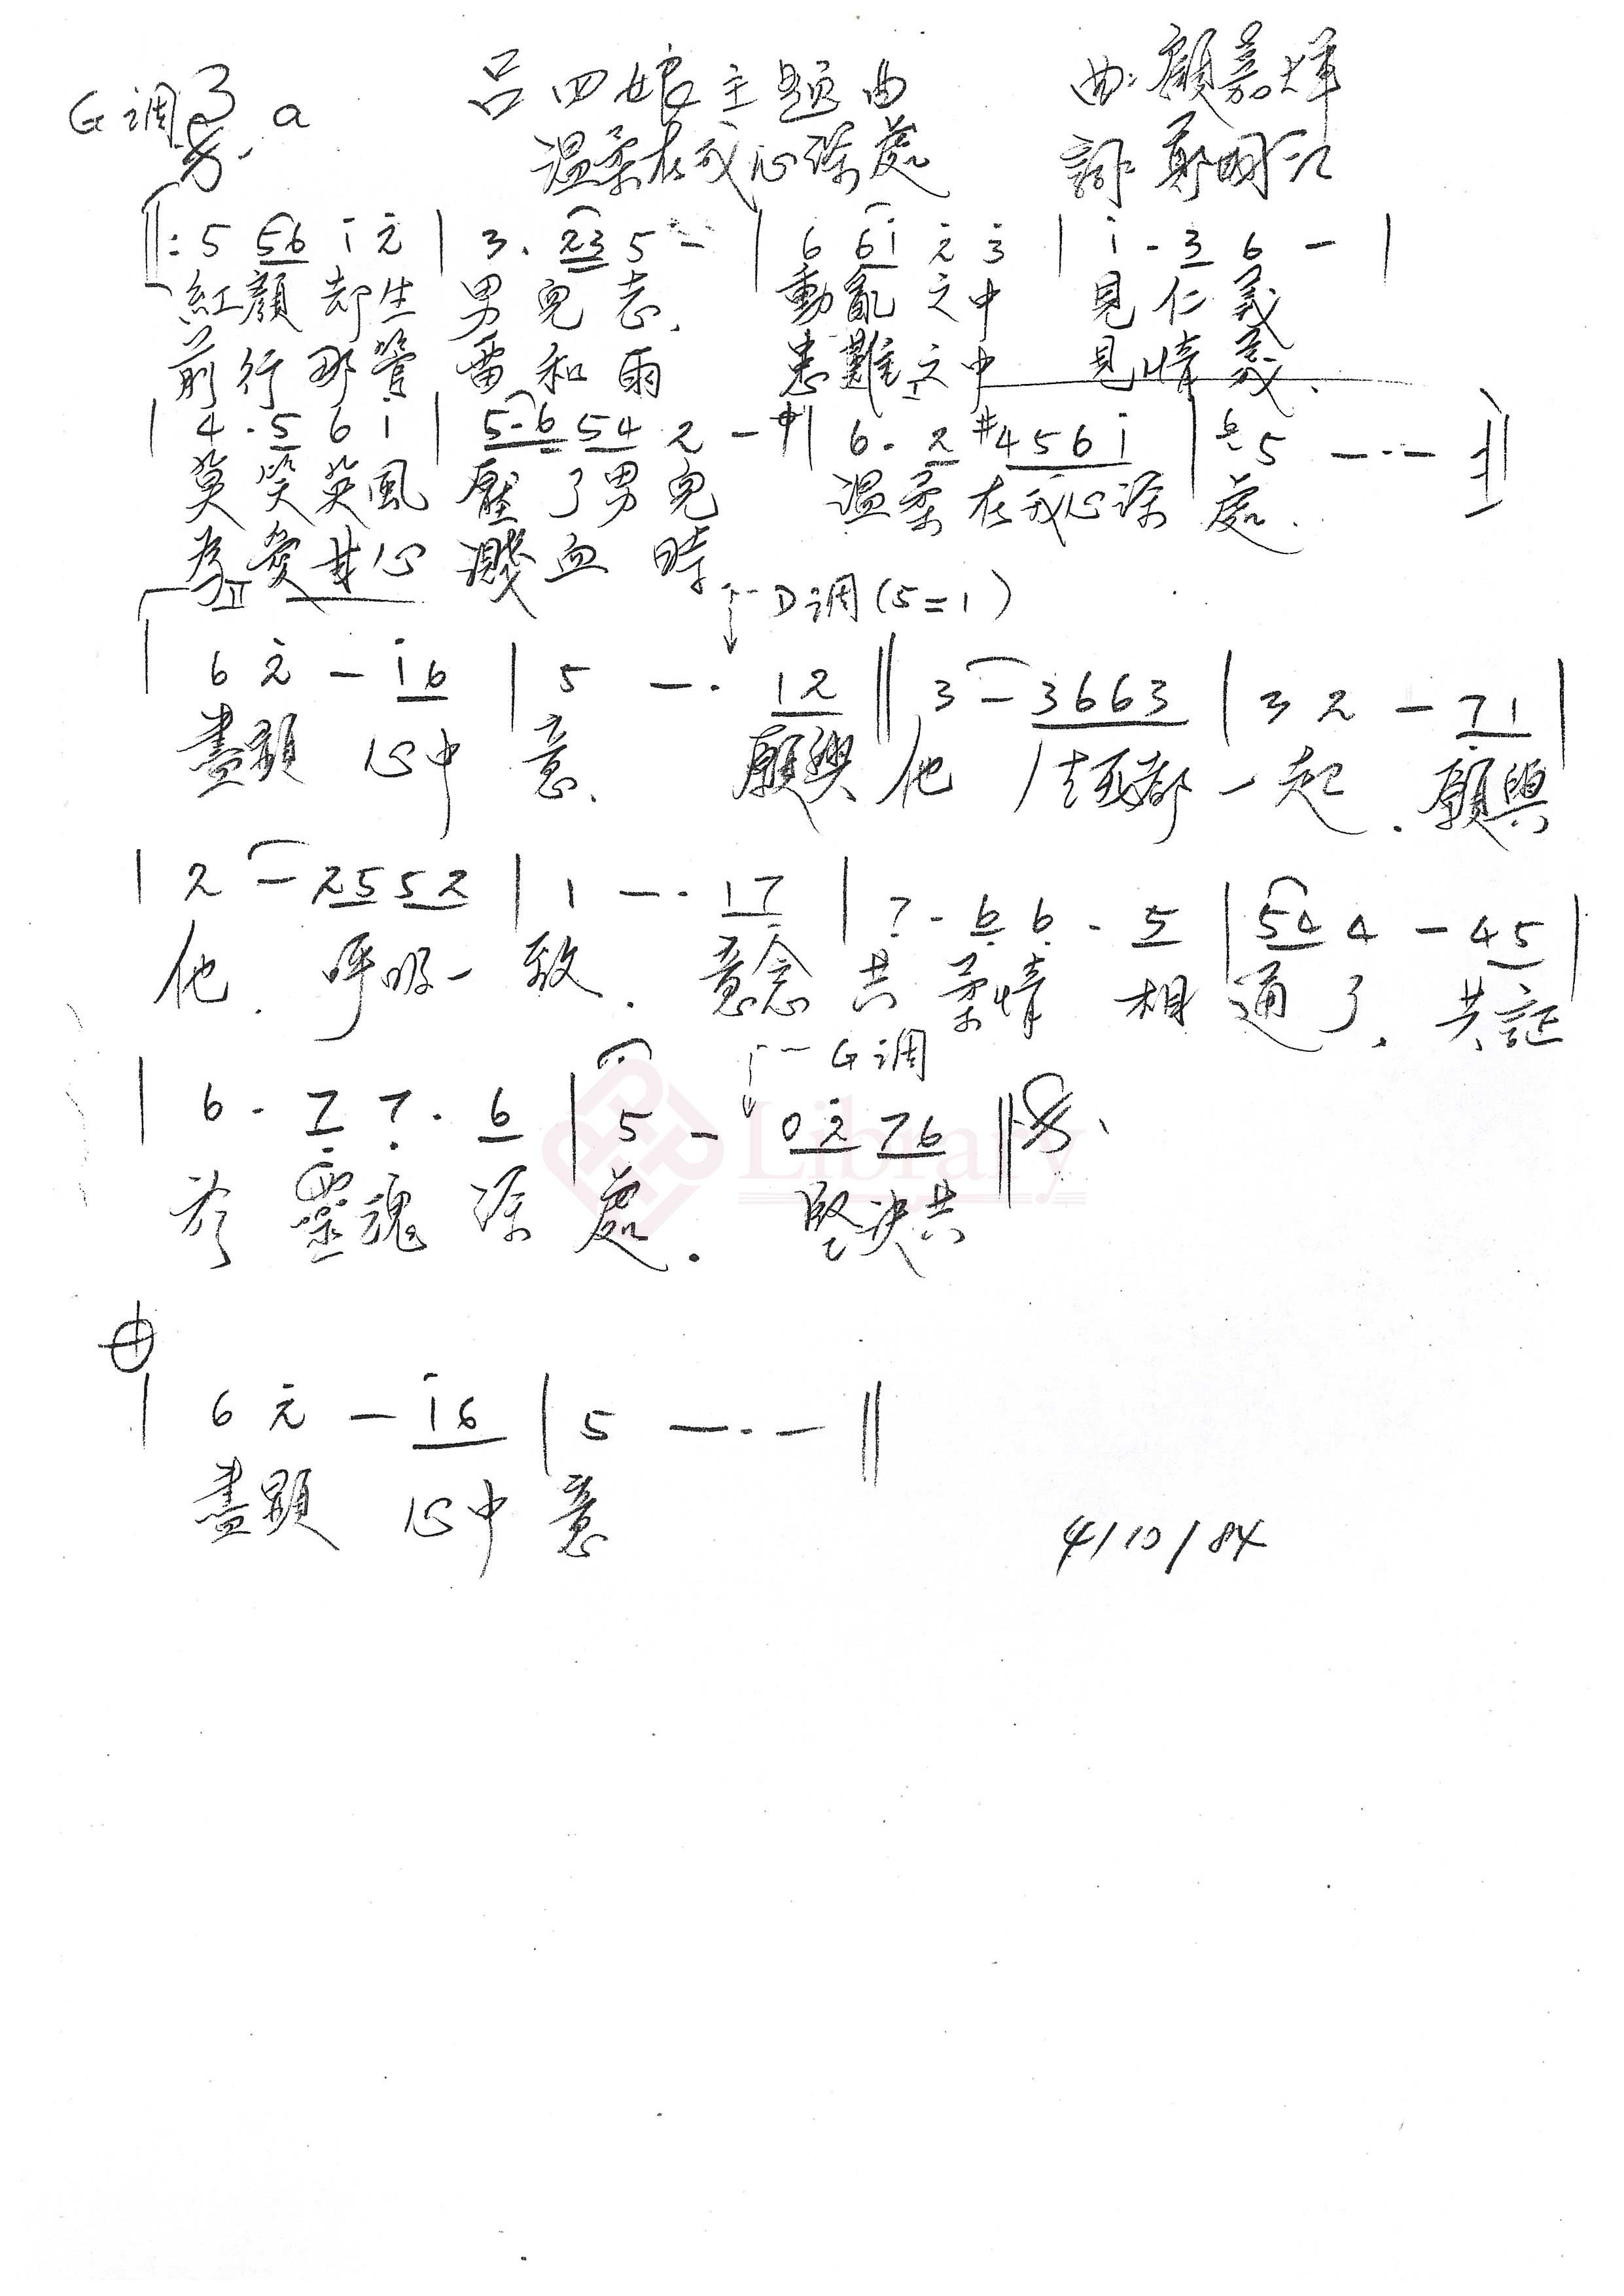 G调 a 呂四娘主题曲 曲:顧嘉煇
溫柔在我心深處 詞:鄭國江
‖: 5 56 i 2 | 3. 23 5 - | 6 6i 2 3 | i . 3 6 - |
紅顏却生 男兒志. 動亂之中 見仁義
前行那管 雷和雨 患難之中 見情義.
| 4 . 5 6 i | 5.6 54 2 - | 6. 2 #4561 | 65 -.- :‖
莫笑英風 壓了男兒 溫柔在我心深 處.
為愛甘心 濺血時
II D调(5=1)
6 2 - i6 | 5 -. 12 ‖ 3 - 3663 | 3 2 - 71 |
盡顯 心中 意. 願與他 生死都一起. 願與
| 2 - 2552 | 1 -. 17 | 7 . 6 6 . 5 | 54 4 - 45 |
他. 呼吸一致. 意念共柔情相通了. 共証
G调
| 6 . 7 7 . 6 | 5 - 02 76 ‖
於靈魂深處. 堅决共
Library
| 6 2 - i6 | 5 -.- ‖
盡顯 心中 意
4/10/84